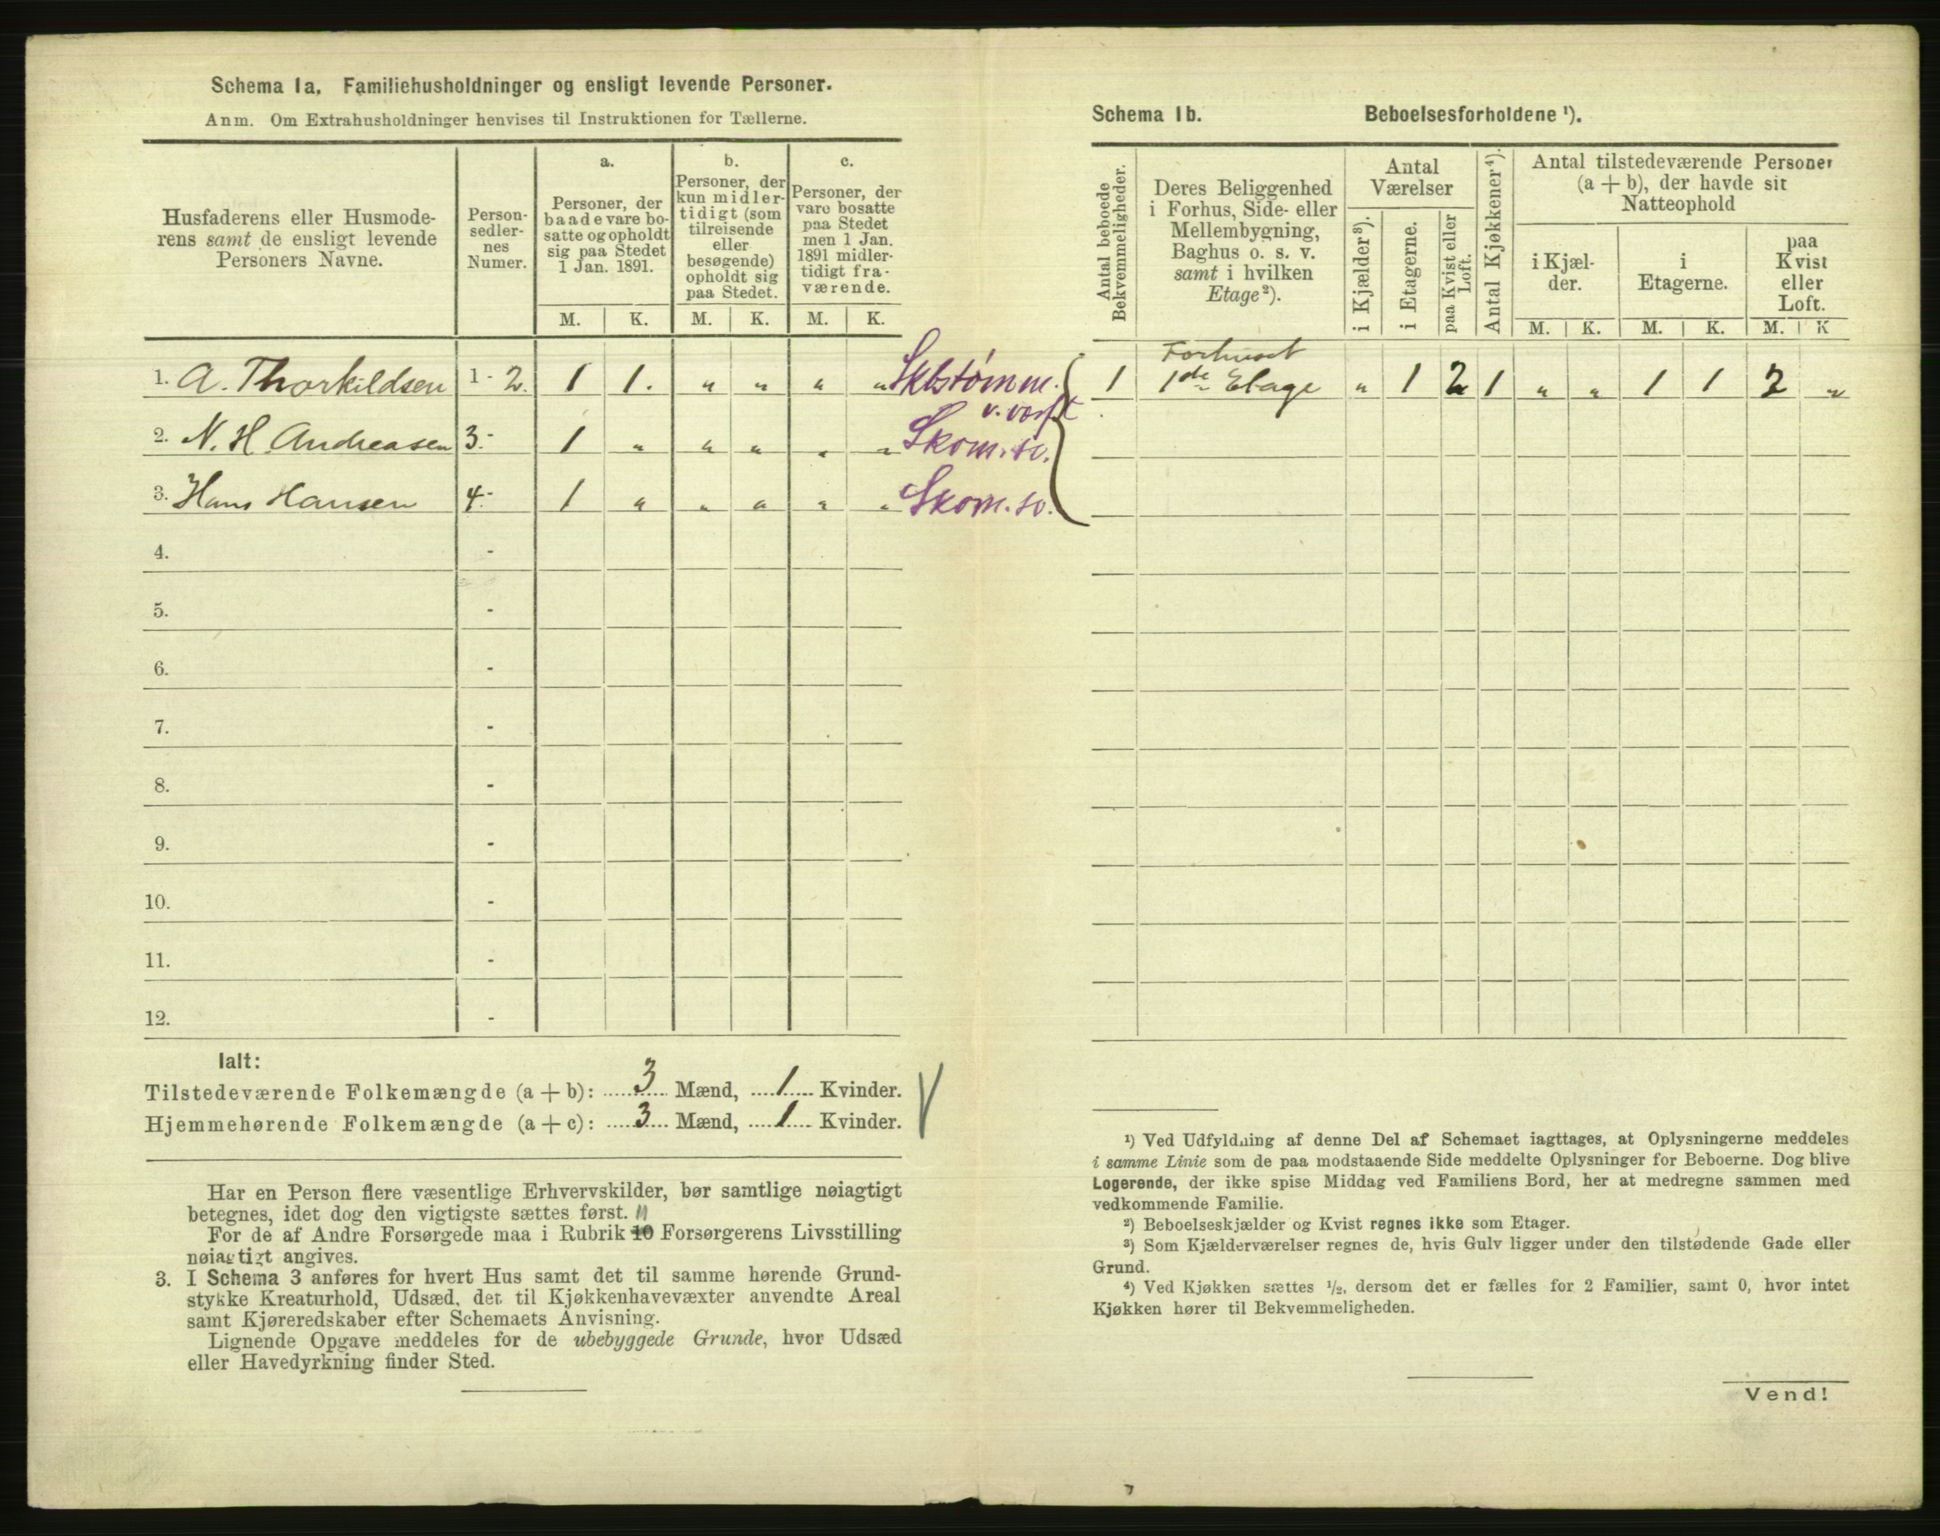 Schema 1a. Familiehusholdninger og ensligt levende Personer.
Anm. Om Extrahusholdninger henvises til Instruktionen for Tællerne.
Husfaderens eller Husmode-
rens samt de ensligt levende
Personers Navne.
Person-
sedler-
nes
Numer.
a.
Personer, der
baade vare bo-
satte og opholdt
sig paa Stedet
1 Jan. 1891.
b.
Personer, der
kun midler-
tidigt (som
tilreisende
eller
besøgende)
opholdt sig
paa Stedet.
c.
Personer, der
vare bosatte
paa Stedet
men 1 Jan.
1891 midler-
tidigt fra-
værende.
M. K. M. K. M. K.
1. A. Thorkildsen 1 - 2. 1 1. " " " " Skbstømm.
v. værft
2. N. H Andreasen 3. - 1 " " " " " Skom. sv.
3. Hans Hansen 4. - 1 " " " " " Skom. sv.
4. -
5. -
6. -
7. -
8. -
9. -
10. -
11. -
12. -
Ialt:
Tilstedeværende Folkemængde (a + b): 3 Mænd, 1 Kvinder.
Hjemmehørende Folkemængde (a + c): 3 Mænd, 1 Kvinder.
Har en Person flere væsentlige Erhvervskilder, bør samtlige nøiagtigt
betegnes, idet dog den vigtigste sættes først. 11
For de af Andre Forsørgede maa i Rubrik 10 Forsørgerens Livsstilling
nøiagtigt angives.
3. I Schema 3 anføres for hvert Hus samt det til samme hørende Grund-
stykke Kreaturhold, Udsæd, det til Kjøkkenhavevæxter anvendte Areal
samt Kjøreredskaber efter Schemaets Anvisning.
Lignende Opgave meddeles for de ubebyggede Grunde, hvor Udsæd
eller Havedyrkning finder Sted.
Schema 1b. Beboelsesforholdene ¹).
Antal beboede
Bekvemmeligheder.
Deres Beliggenhed
i Forhus, Side- eller
Mellembygning,
Baghus o. s. v.
samt i hvilken
Etage ²).
Antal
Værelser
i Kjælder ³).
i Etagerne.
paa Kvist eller
Loft.
Antal Kjøkkener ⁴).
Antal tilstedeværende Personer
(a + b), der havde sit
Natteophold
i Kjæl-
der.
i
Etagerne.
paa
Kvist
eller
Loft.
M. K. M. K. M. K
Forhuset
1 1de Etage " 1 2 1 " " 1 1 2 "
¹) Ved Udfyldning af denne Del af Schemaet iagttages, at Oplysningerne meddeles
i samme Linie som de paa modstaaende Side meddelte Oplysninger for Beboerne. Dog blive
Logerende, der ikke spise Middag ved Familiens Bord, her at medregne sammen med
vedkommende Familie.
²) Beboelseskjælder og Kvist regnes ikke som Etager.
³) Som Kjælderværelser regnes de, hvis Gulv ligger under den tilstødende Gade eller
Grund.
⁴) Ved Kjøkken sættes ½, dersom det er fælles for 2 Familier, samt 0, hvor intet
Kjøkken hører til Bekvemmeligheden.
Vend!